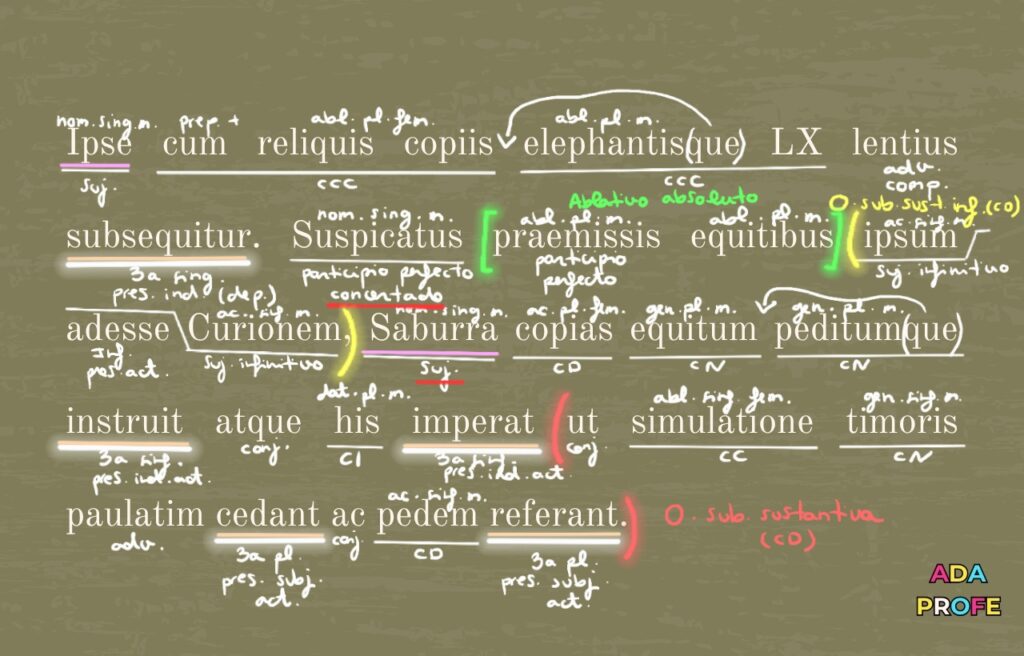 nom.sing.m. prep. + abl. pl. fem. abl. pl. m.
Ipse cum reliquis copiis elephantis(que) LX lentius
suj. CCC CCC adv. comp.
Ablativo absoluto O. sub. sust. inf. (CD)
nom. sing. m. abl. pl. m. abl. pl. m. ac. sing. m.
subsequitur. Suspicatus [praemissis equitibus] (ipsum
3a sing. participio perfecto participio suj. infinitivo
pres. ind. (dep.) concertado perfecto
ac. sing. m. nom. sing. m. ac. pl. fem. gen. pl. m. gen. pl. m.
adesse Curionem,) Saburra copias equitum peditum(que)
Inf. suj. infinitivo suj. CD CN CN
pres. act.
dat. pl. m. abl. sing. fem. gen. sing. m.
instruit atque his imperat (ut simulatione timoris
3a sing. conj. CI 3a sing. conj. CC CN
pres. ind. act. pres. ind. act.
ac. sing. m.
paulatim cedant ac pedem referant.) O. sub. sustantiva
adv. conj. CD (CD)
3a pl. 3a pl.
pres. subj. pres. subj.
act. act.
ADA
PROFE